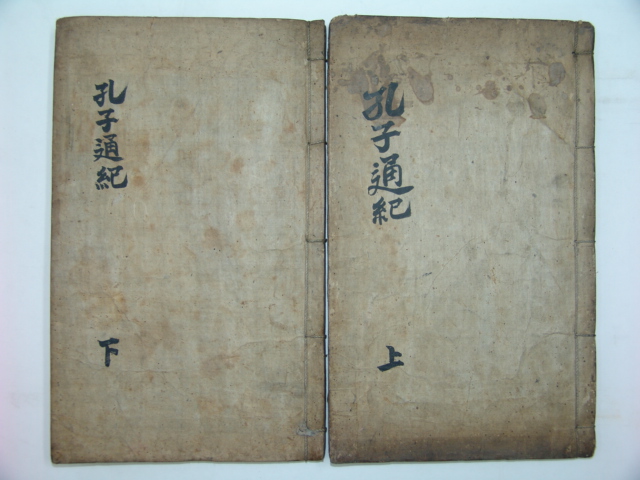 孔子通紀
上
孔子通紀
下